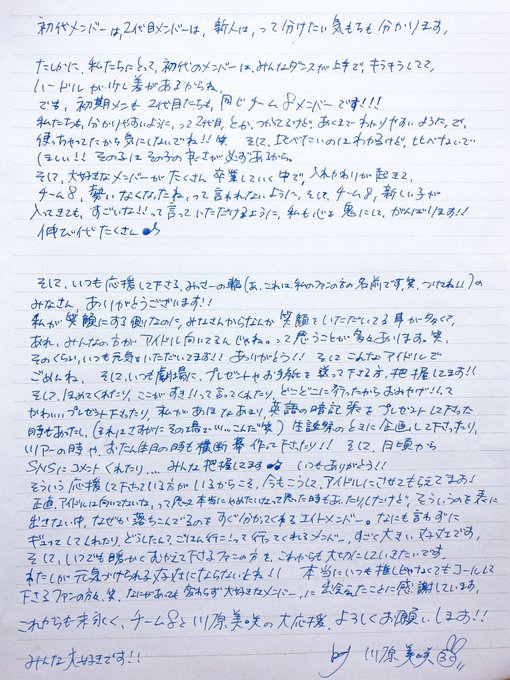 初代メンバーは、2代目メンバーは、新人は、って分けたい気もちも分かります。
たしかに、私たちにとって、初代のメンバーは、みんなダンスが上手で、キラキラしてて、
ハードルが少し差があるからね。
でも、初期メンも2代目たちも、同じチーム8メンバーです!!!
私たちも、分かりやすいように、って2代目、とか、つかってるけど、あくまでわかりやすいように、で、
使っちゃってたから気にしないでね!!笑 そして、比べたいのはわかるけど、比べないで
ほしい!! その子にはその子の良さが必ずあるから。
そして、大好きなメンバーがたくさん卒業していく中で、入れかわりが起きて、
チーム8、勢いなくなったね、って言われないように、そして、チーム8、新しい子が
入ってきても、すごいな!!って言っていただけるように、私も心を鬼にして、がんばります!!
伸び代たくさん♪
そして、いつも応援して下さる、みさきーの輪(あ、これは、私のファンの方の名前です。笑、つけてね!!)の
みなさん、ありがとうございます!!
私が笑顔にする側なのに、みなさんからなんか笑顔をいただいてる事が多くて、
あれ、みんなの方がアイドル向いてるんじゃね。って思うことが多々あります。笑、
そのくらい、いつも元気をいただいてます!! ありがとう!! そしてこんなアイドルで
ごめんね、そして、いつも劇場に、プレゼントやお手紙を送って下さる方、把握してます!!
そして、ほめてくれたり、ここがすき!!って言ってくれたり、どこどこに行ったからおみやげ!!って
かわいいプレゼント下さったり、私があほなあまり、英語の暗記表をプレゼントして下さった
時もあったし、(それはさすがにその場で、、、こんだ笑) 生誕祭のときに企画して下さったり、
ツアーの時や、おたん生日の時も横断幕作って下さったり!! そして、日頃から
SNSにコメントくれたり、... みんな把握してます♪ いつもありがとう!!
そういう応援して下さっている方がいるからこそ、今もこうして、アイドルにさせてもらえてます!
正直、アイドルは向いてないな、って思って本当にやめたいなって思った時もあったりしたけど、そういうのを表に
出さない中、なぜか落ちこんでるのをすぐ分かってくれるエイトメンバー。なにも言わずに
ぎゅってしてくれたり、どうしたん?ごはん行こ!って行ってくれるメンバー、すごく大きい存在です。
そして、いつでも暖かくむかえて下さるファンの方を、これからも大切にしていきたいです。
わたしが元気づけられる存在にならないとね!! 本当にいつも推しじゃなくてもコールして
下さるファンの方も、笑、なにがあっても変わらず大好きなメンバー、に出会えたことに感謝しています。
これからも末永く、チーム8と川原美咲の大応援、よろしくお願いします!!
みんな大好きです!! by 川原美咲